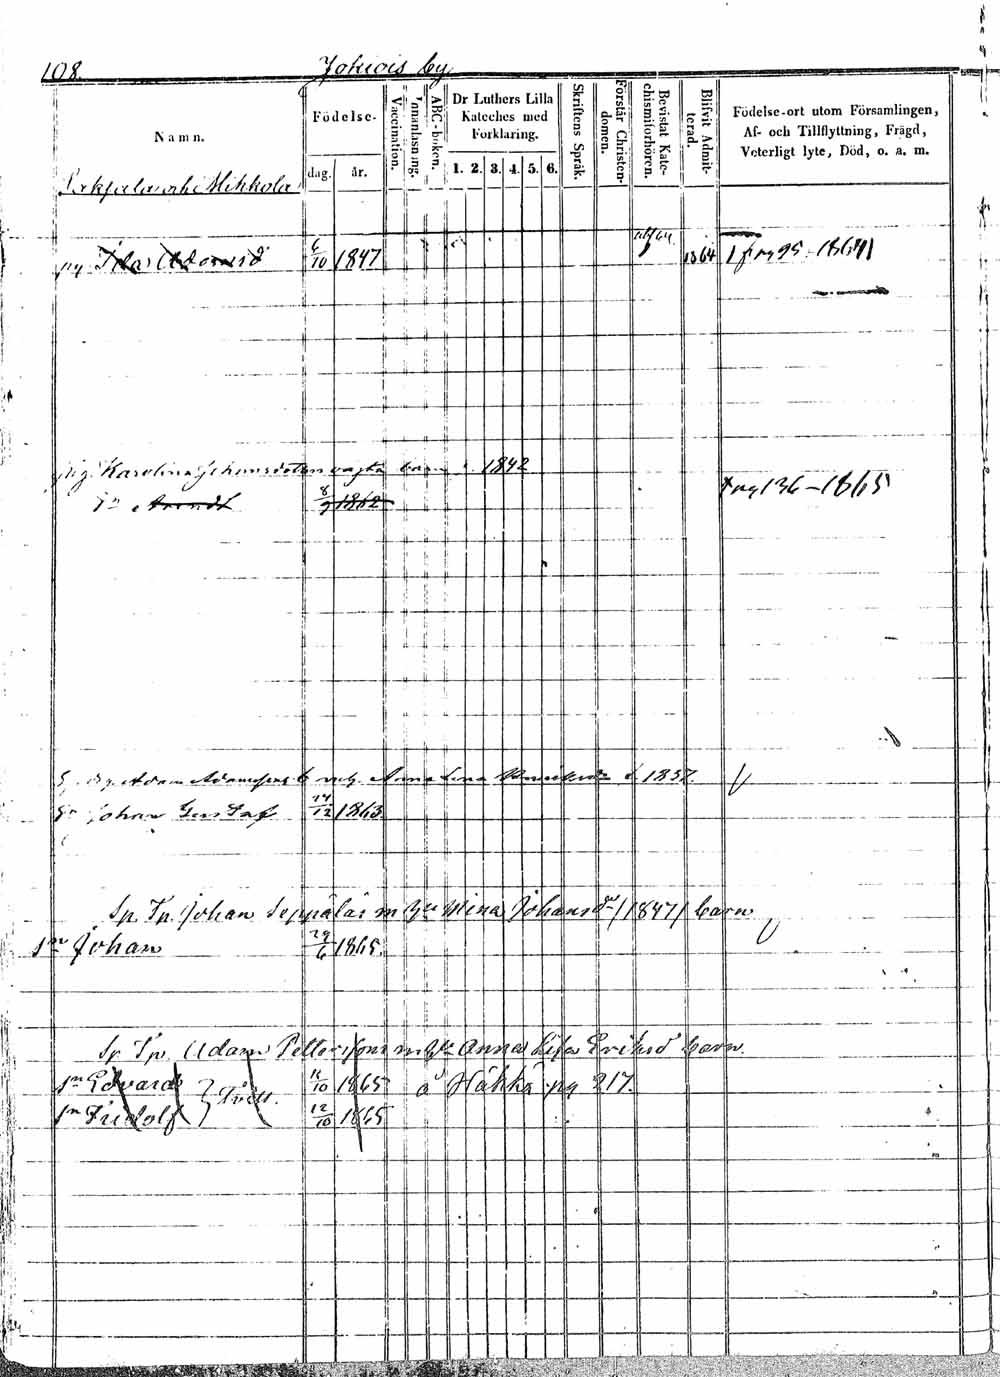 108. Jokiois by
Namn.
Födelse-
dag. år.
Vaccination.
Innanläsning.
ABC-boken.
Dr Luthers Lilla
Kateches med
Förklaring.
1. 2. 3. 4. 5. 6.
Skriftens Språk.
Förstår Christen-
domen.
Bevistat Kate-
chismiförhören.
Blifvit Admit-
terad.
Födelse-ort utom Församlingen,
Af- och Tillflyttning, Frägd,
Veterligt lyte, Död, o. a. m.
och Mihkola
pig. Ida Adamsd 6/10 1847 1864 pag 95 - 1864
pig. Karolina Johansdotters oägta barn 1842
Sn 8/9 1862 pag 136 - 1865
Adam Adamssons Anna Lena f. 1837.
Sn Johan Gustaf 24/12 1863
Sp. Tp. Johan Seppäläs m Hu Mina Johansdr /1847/ barn
Sn Johan 29/6 1865.
Sp. Tp. Adam Pettersons m Hu Anna Lisa Eriksd barn.
Sn Edvard 12/10 1865 å Häkkä pg 217.
Sn Fridolf 12/10 1865